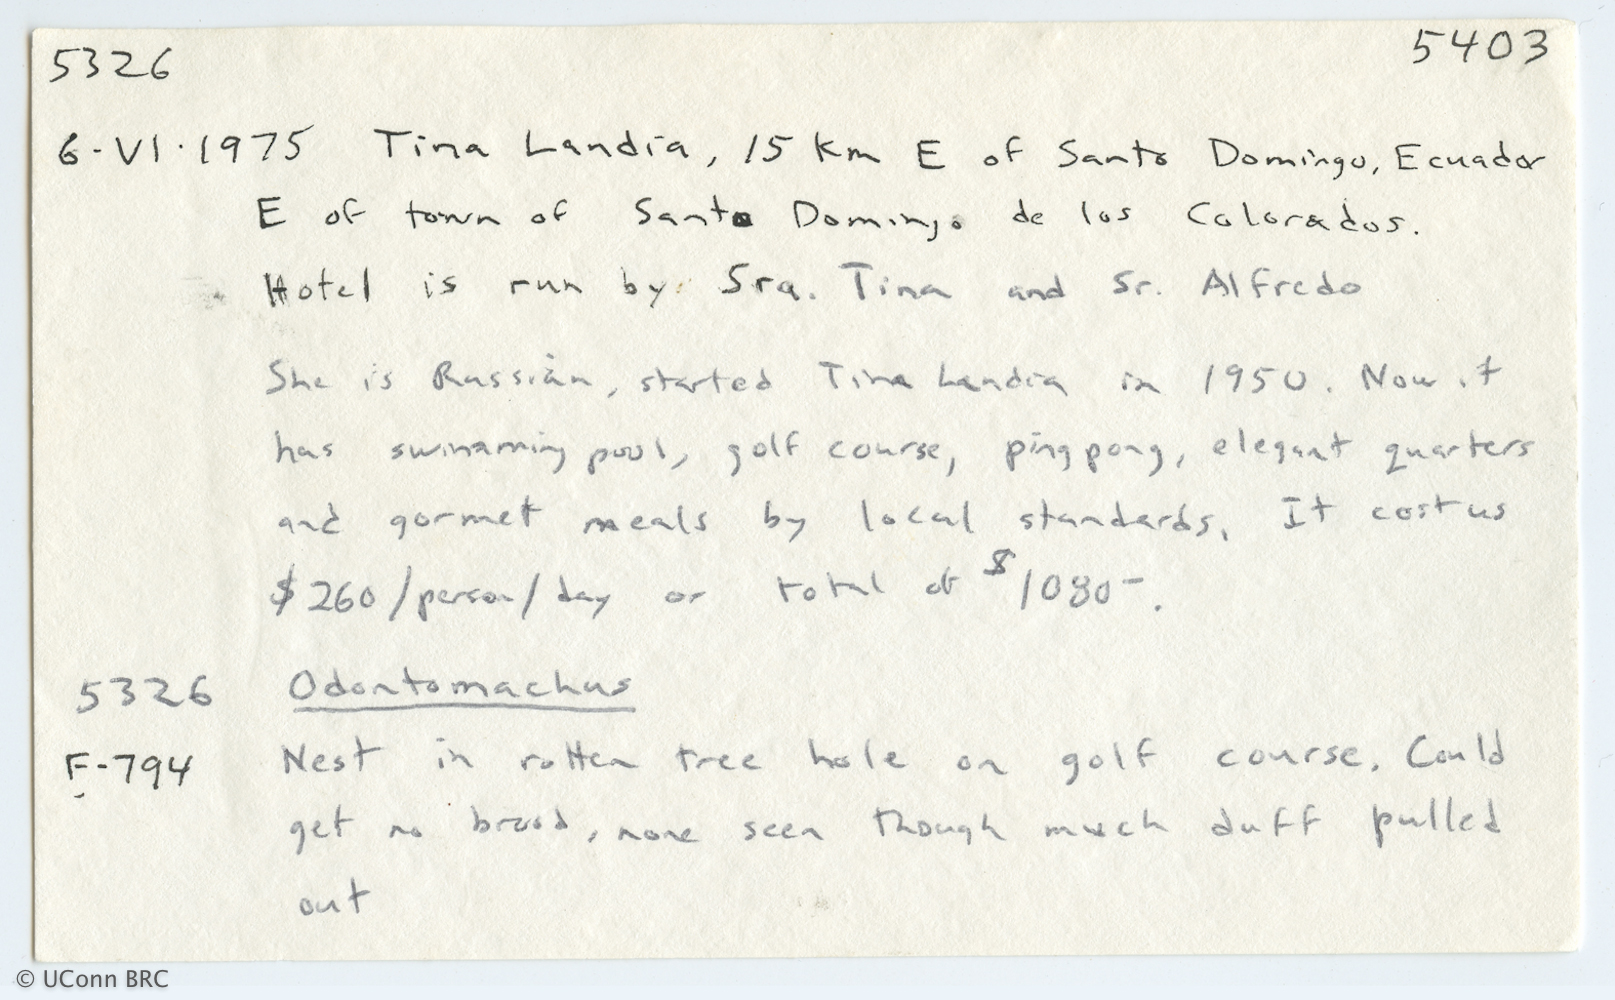 5326 5403
6-VI-1975 Tina Landia, 15 Km E of Santo Domingo, Ecuador
E of town of Santo Domingo de los Colorados.
Hotel is run by Sra. Tina and Sr. Alfredo
She is Russian, started Tina Landia in 1950. Now it
has swimming pool, golf course, pingpong, elegant quarters
and gormet meals by local standards. It cost us
$260/person/day or total of $1080-.
5326 Odontomachus
F-794 Nest in rotten tree hole on golf course. Could
get no brood, none seen though much duff pulled
out
© UConn BRC